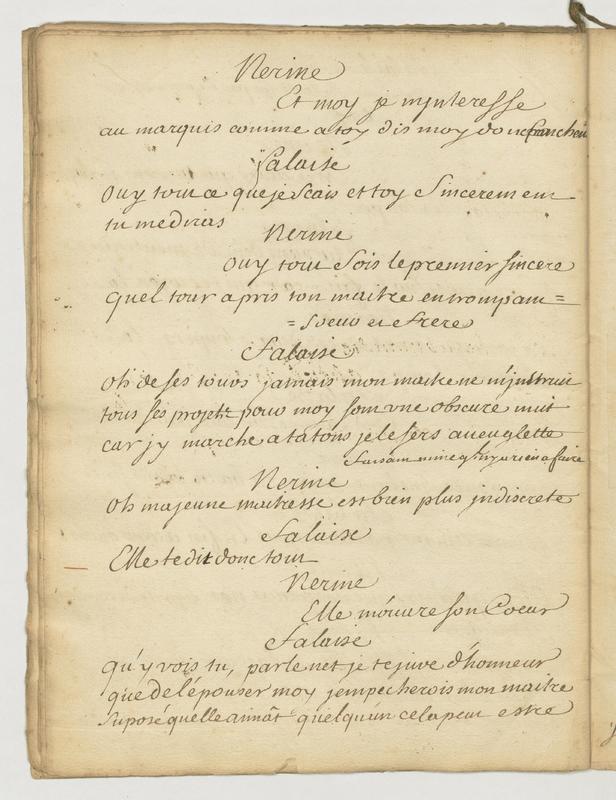 Nerine
Et moy je mynteresse
au marquis comme a toy dis moy donc franchem
Falaise
ouy tout ce que je scais et toy sincerement
tu me diras
Nerine
ouy tout sois le premier sincere
quel tour a pris ton maitre en trompant =
= soeur et frere
Falaise
oh de ses tours jamais mon maitre ne m'jnstruit
tous ses projets pour moy sont vne obscure nuit
car j'y marche a tatons je le sers aueuglette
faisant mine qu'il n'y a rien a faire
Nerine
oh ma jeune maitresse est bien plus jndiscrete
Falaise
Elle te dit donc tout
Nerine
Elle m'ouure son Coeur
Falaise
qu'y vois tu, parle net je te jure d'honneur
que de l'épouser moy j'empecherois mon maitre
suposé quelle aimât quelqu'un cela peut estre